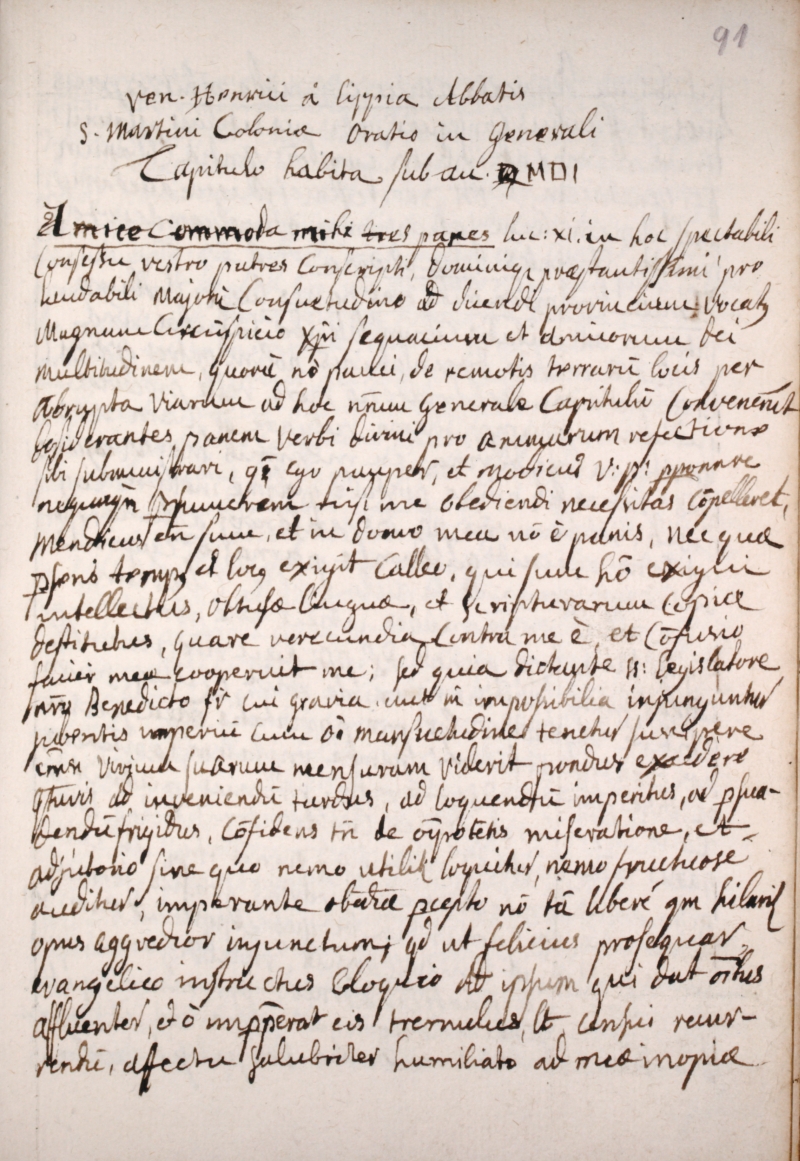 91
Ven. Henrici á Lippia Abbatis
S. Martini Coloniæ Oratio in Generali
Capitulo habita sub an. MDI
Amice Commoda mihi tres panes luc: xi. in hoc spectabili
Consessu vestro patres Conscripti, Dominiqz præstantissimi pro
laudabili Majorū Consuetudine ad dicendi provinciam vocatz
Magnam Circūspicio xp̄i sequacium et domicorum Dei
multitudinem, quorū nō pauci, de remotis terrarū locis per
abrupta viarum ad hoc nr̄um Generale Capitulū Convenerūt
desiderantes panem Verbi divini pro animarum refectione
sibi subministrari, qē ego pauper, et modicus V: P: pponere
nequaqm̄ psumerem nisi me obediendi necessitas Cōpelleret,
Mendicus em̄ sum, et in domo mea nō ē panis, nec quæ
pn̄s tempz et locz exigit Calleo, qui sum hō exigui
intellectus, obtusæ linguæ, et scripturarum Copiæ
destitutus, quare verecundia Contra me ē, et Cōfusio
faciei meæ cooperuit me; sed quia dictante SS: Legislatore
nr̄o Benedicto fr̄ cui gravia aut impossibilia injunguntur
jubentis imperiū cum oī mansuetudine tenetur suscipere
etm̄si Virium suarum mensuram viderit pondus excedere
qmvis ad inveniendū tardus, ad loquendū imperitus, ad psua-
dendū frigidus, Cōfidens tn̄ de oīpotētis miseratione, et
adjutorio sine quo nemo utilit loquitur, nemo fructuose
auditur, imperante obediæ pcepto nō tā liberé qm hilarit
opus aggredior injunctum; qd ut felicius prosequar
evangelico instructus Eloquio ad ipsum qui dat oībus
affluenter, et ō improperat eis tremulus, et censui recur-
rendū, affectu salubriter humiliato ad meæ inopiæ